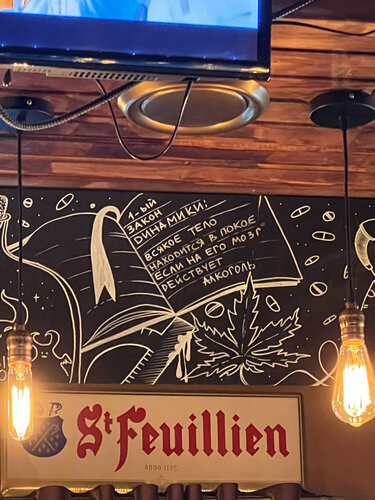 1-ЫЙ
ЗАКОН
DИНАМИКИ:
ВСЯКОЕ ТЕЛО
НАХОДИТСЯ В ПОКОЕ
ЕСЛИ НА ЕГО МОЗГ
ДЕЙСТВУЕТ
АЛКОГОЛЬ
St Feuillien
ABBY 1125